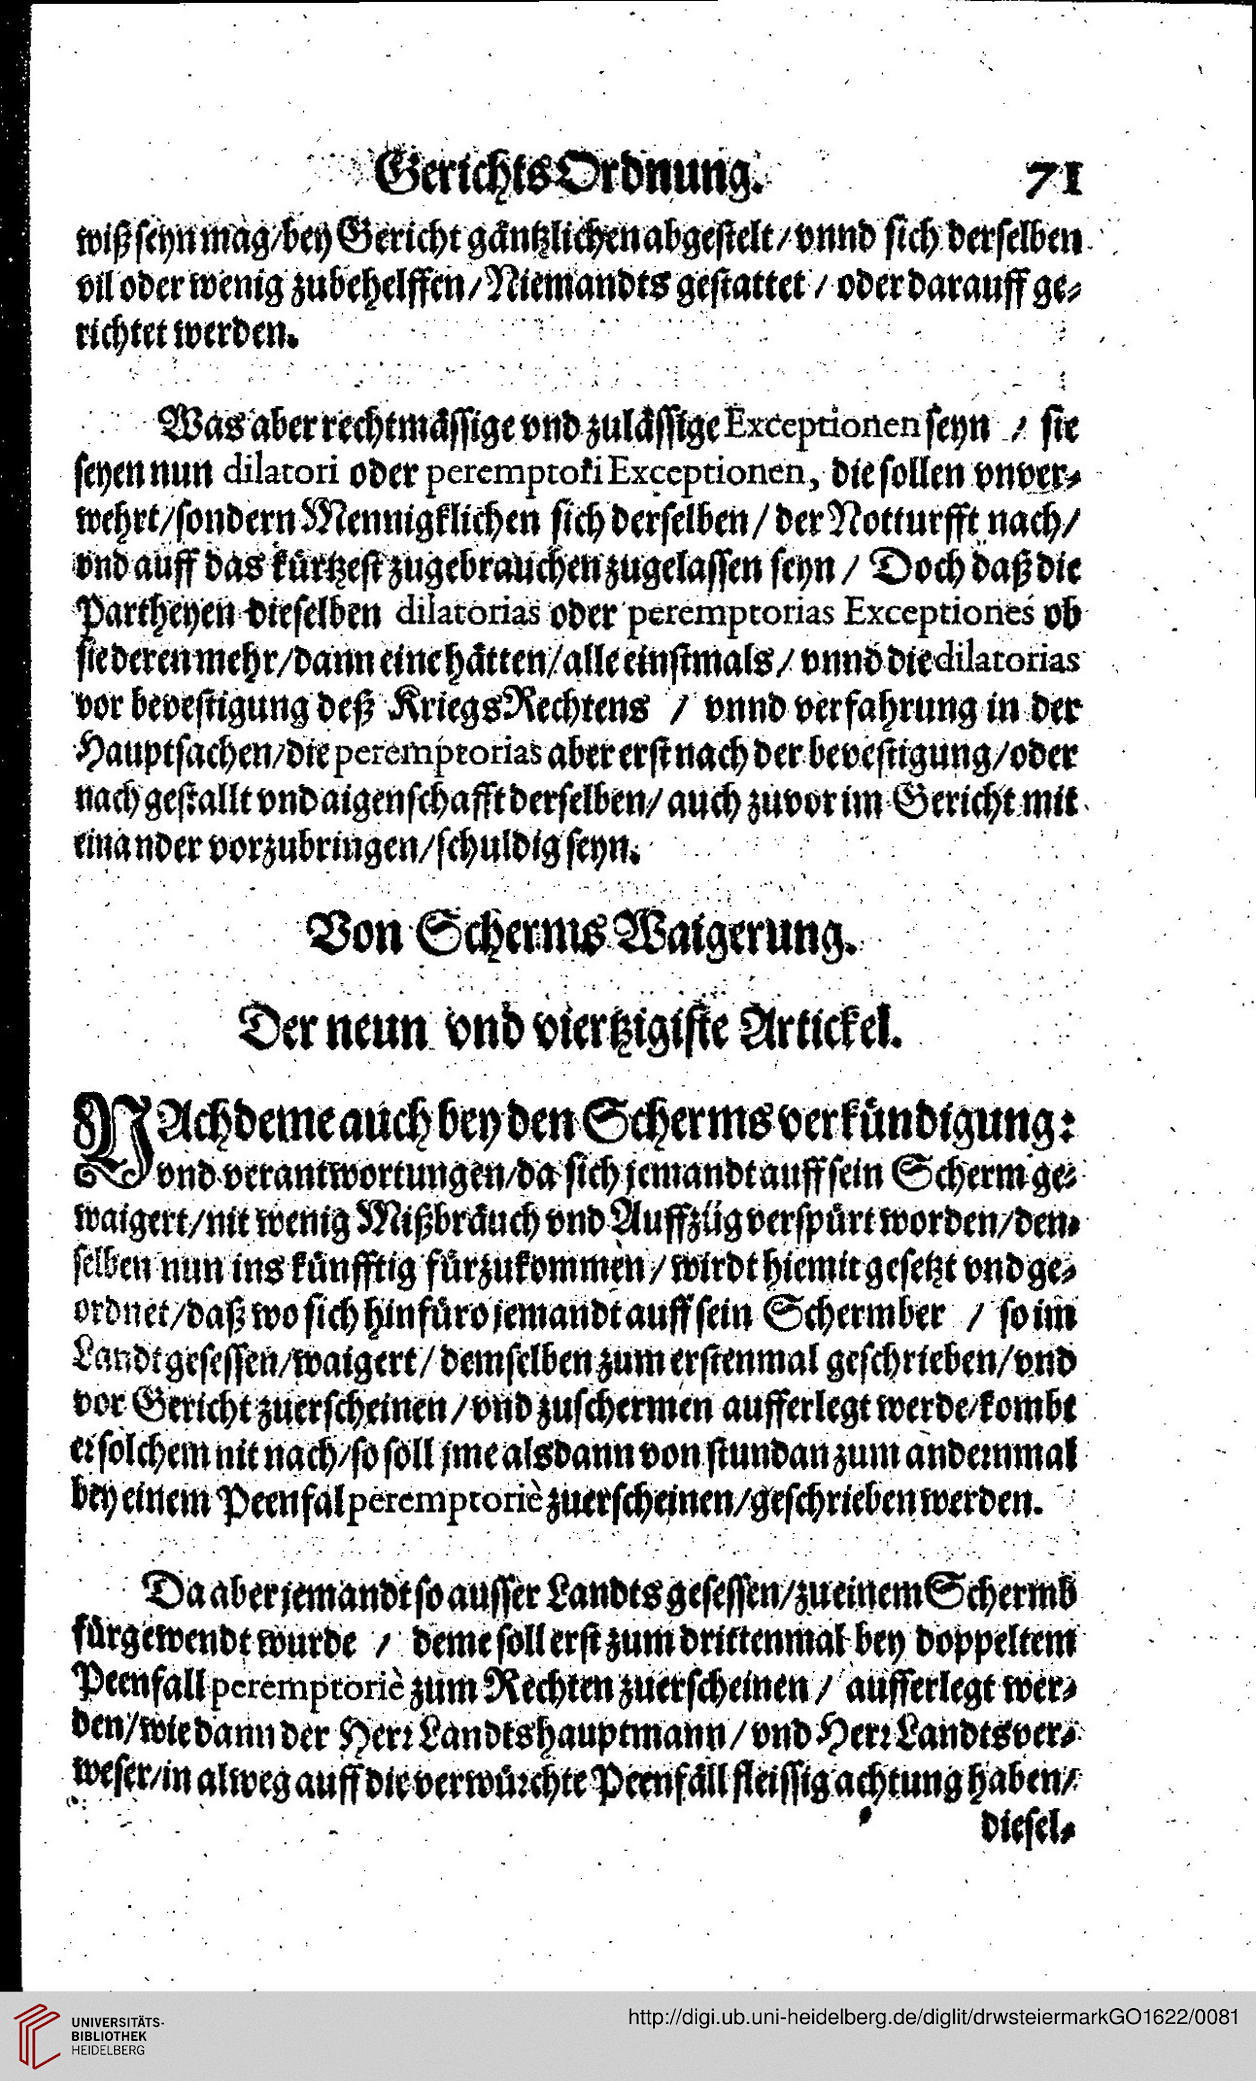 GerichtsOrdnung. 71
wiß seyn mag/bey Gericht gäntzlichen abgestelt/vnnd sich derselben
vil oder wenig zubehelffen/Niemandts gestattet/oder darauff ge-
richtet werden.
Was aber rechtmässige vnd zulässige Exceptionen seyn / sie
seyen nun dilatori oder peremptori Exceptionen, die sollen vnver-
wehrt/sondern Mennigklichen sich derselben/der Notturfft nach/
vnd auff das kürtzest zugebrauchen zugelassen seyn / Doch daß die
Partheyen dieselben dilatorias oder peremptorias Exceptiones ob
sie deren mehr/dann eine hätten/alle einstmals/vnnd die dilatorias
vor bevestigung deß KriegsRechtens / vnnd verfahrung in der
Hauptsachen/die peremptorias aber erst nach der bevestigung/oder
nach gestallt vnd aigenschafft derselben/auch zuvor im Gericht mit
einander vorzubringen/schuldig seyn.
Von Scherms Waigerung.
Der neun vnd viertzigiste Artickel.
NAchdeme auch bey den Schermsverkündigung:
vnd verantwortungen/da sich jemandt auff sein Scherm ge-
waigert/nit wenig Mißbräuch vnd Auffzüg verspürt worden/den-
selben nun ins künfftig fürzukommen/wirdt hiemit gesetzt vnd ge-
ordnet/daß wo sich hinfüro jemandt auff sein Schermber / so im
Landt gesessen/waigert/demselben zum erstenmal geschrieben/vnd
vor Gericht zuerscheinen/vnd zuschermen aufferlegt werde/kombt
er solchem nit nach/so soll jme alsdann von stundan zum andernmal
bey einem Peenfal peremptoriè zuerscheinen/geschrieben werden.
Da aber jemandt so ausser Landts gesessen/zu einem Schermb
fürgewendt wurde / deme soll erst zum drittenmal bey doppeltem
Peenfall peremptoriè zum Rechten zuerscheinen / aufferlegt wer-
den/wie dann der Herr Landtshauptmann/vnd Herr Landtsver-
weser/in alweg auff die verwürchte Peenfäll fleissig achtung haben/
diesel-
UNIVERSITÄTS-
BIBLIOTHEK
HEIDELBERG
http://digi.ub.uni-heidelberg.de/diglit/drwsteiermarkGO1622/0081